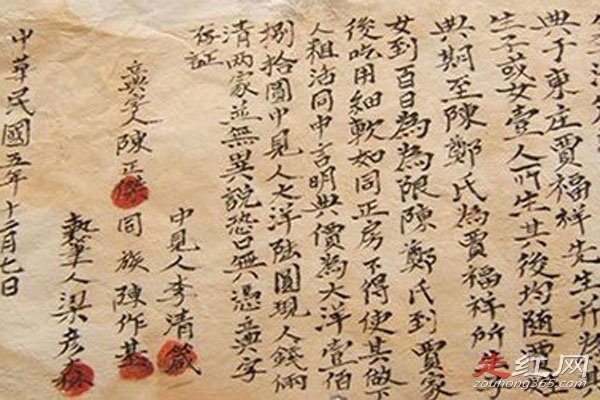 典于東庄賈福祥先生并將其
生子或女壹人所生其後均隨賈
典期至陳鄭氏為賈福祥所
女到百日為為限陳鄭氏到賈家
後吃用細軟如同正房不得使其做下
人粗活同中言明典價為大洋壹佰
捌拾圓中見人大洋陆圓現人錢兩
清两家並無異說恐口無憑立典字
存证
中見人李清箴
典字人陳正傑 同族陳作基
執筆人梁彦森
中華民國五年十二月七日
走红网
zouhong365.com